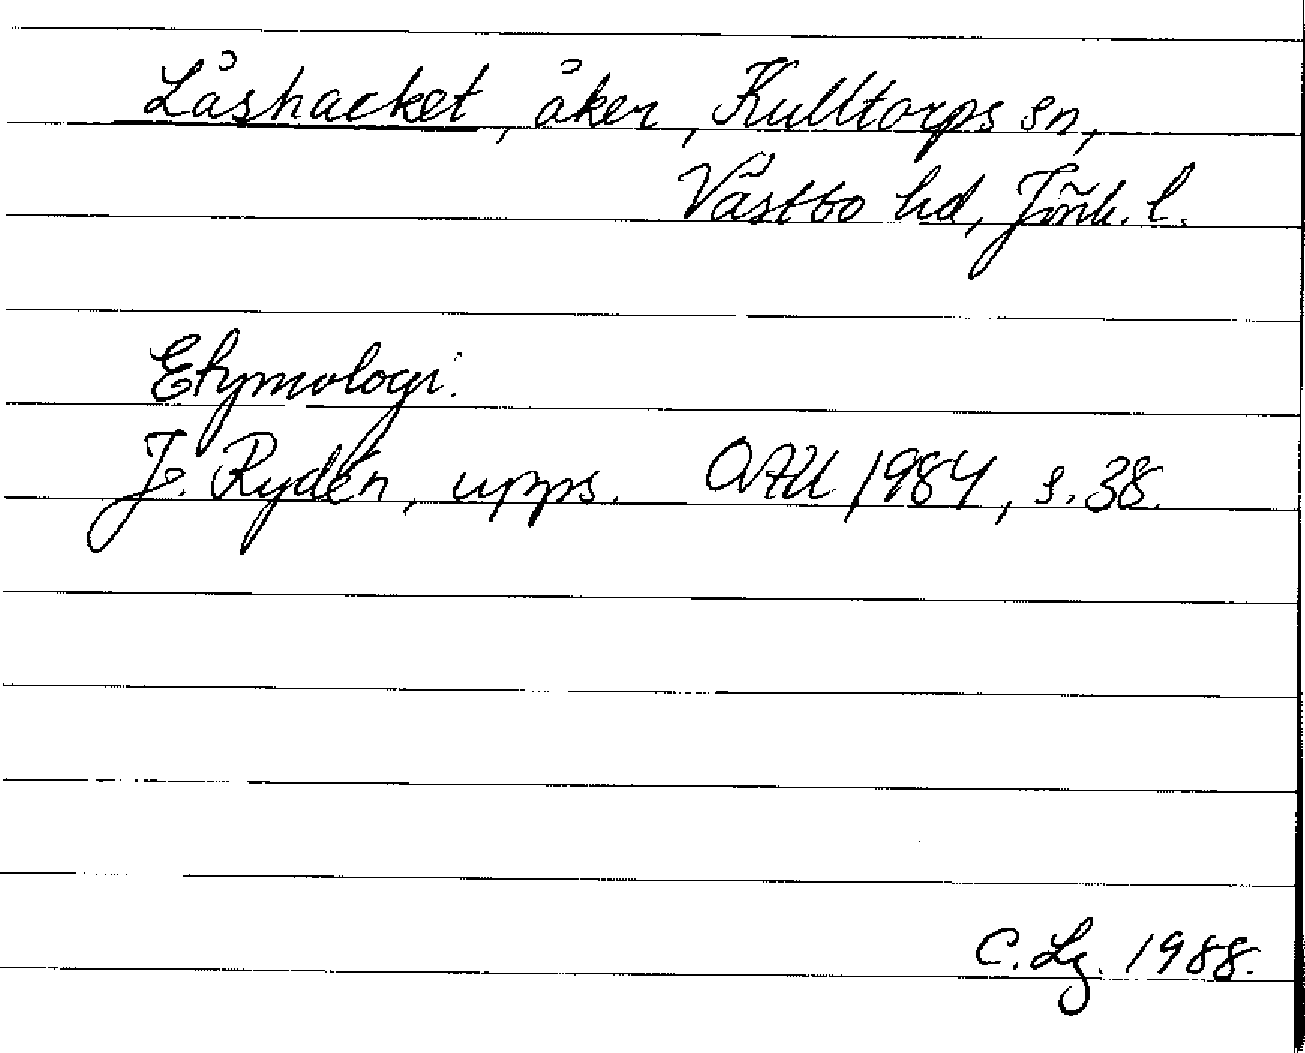 Låshacket, åker, Kulltorps sn,
Västbo hd, Jönk. l.
Etymologi.
Jo. Rydén, upps. OAU 1984, s. 38.
C. Lg. 1988.